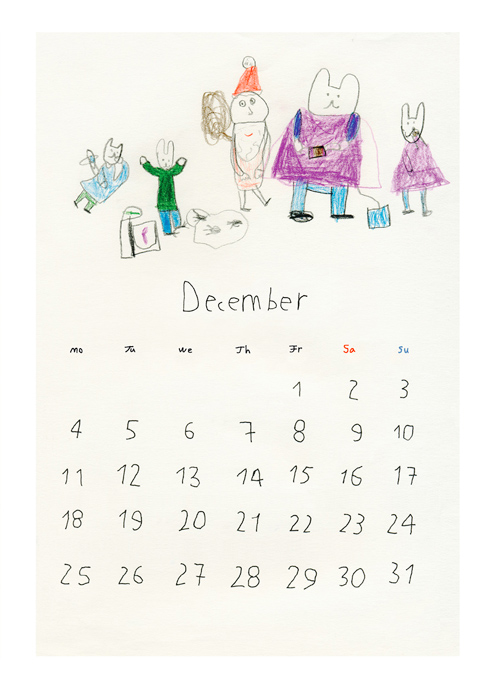 December
Mo Tu We Th Fr Sa Su
1 2 3
4 5 6 7 8 9 10
11 12 13 14 15 16 17
18 19 20 21 22 23 24
25 26 27 28 29 30 31